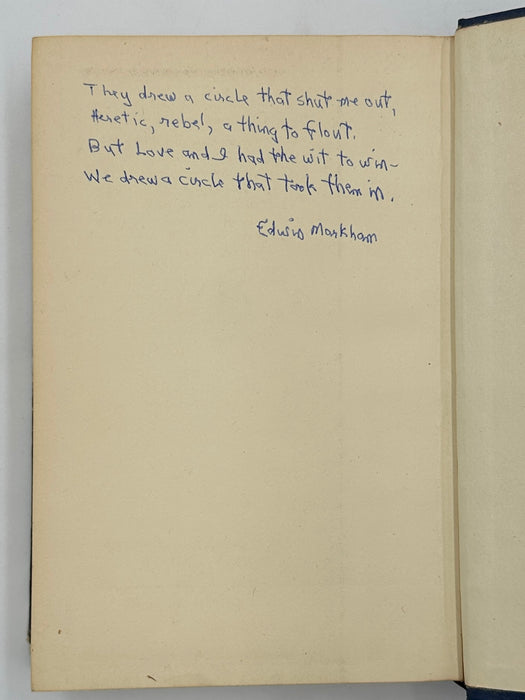 They drew a circle that shut me out,
Heretic, rebel, a thing to flout.
But Love and I had the wit to win–
We drew a circle that took them in.
Edwin Markham